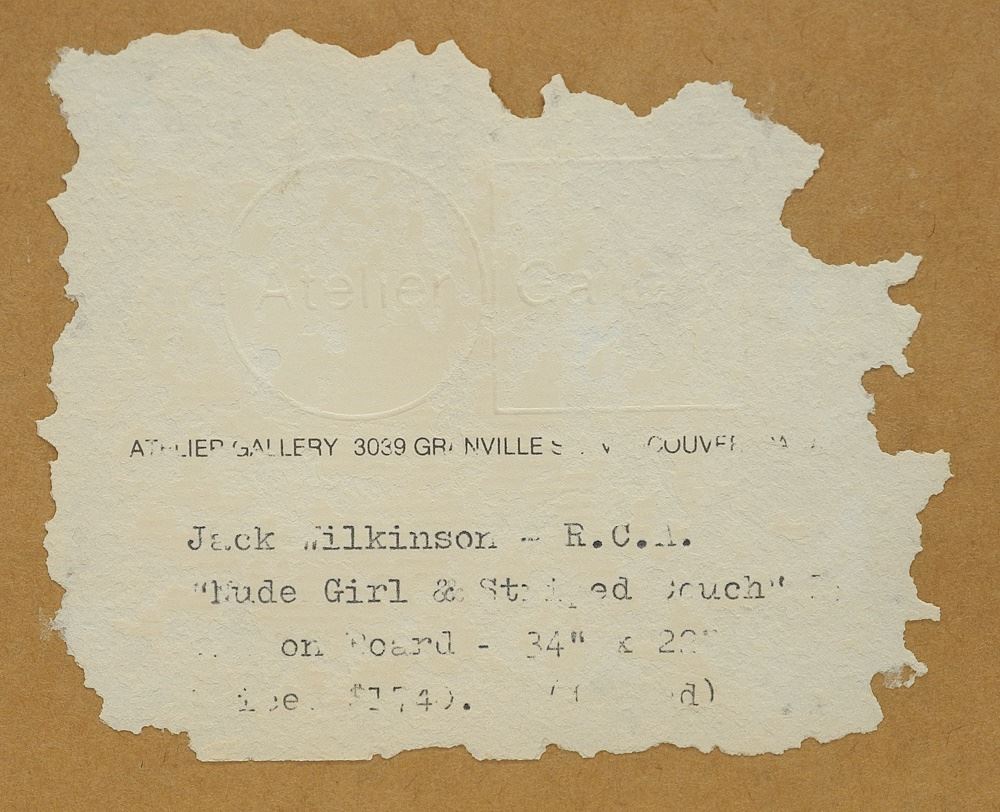 Atelier Gallery
ATELIER GALLERY 3039 GRANVILLE ST. VANCOUVER
Jack Wilkinson - R.C.A.
"Nude Girl & Striped Couch"
on Board - 34" x 22"
Price $1740.